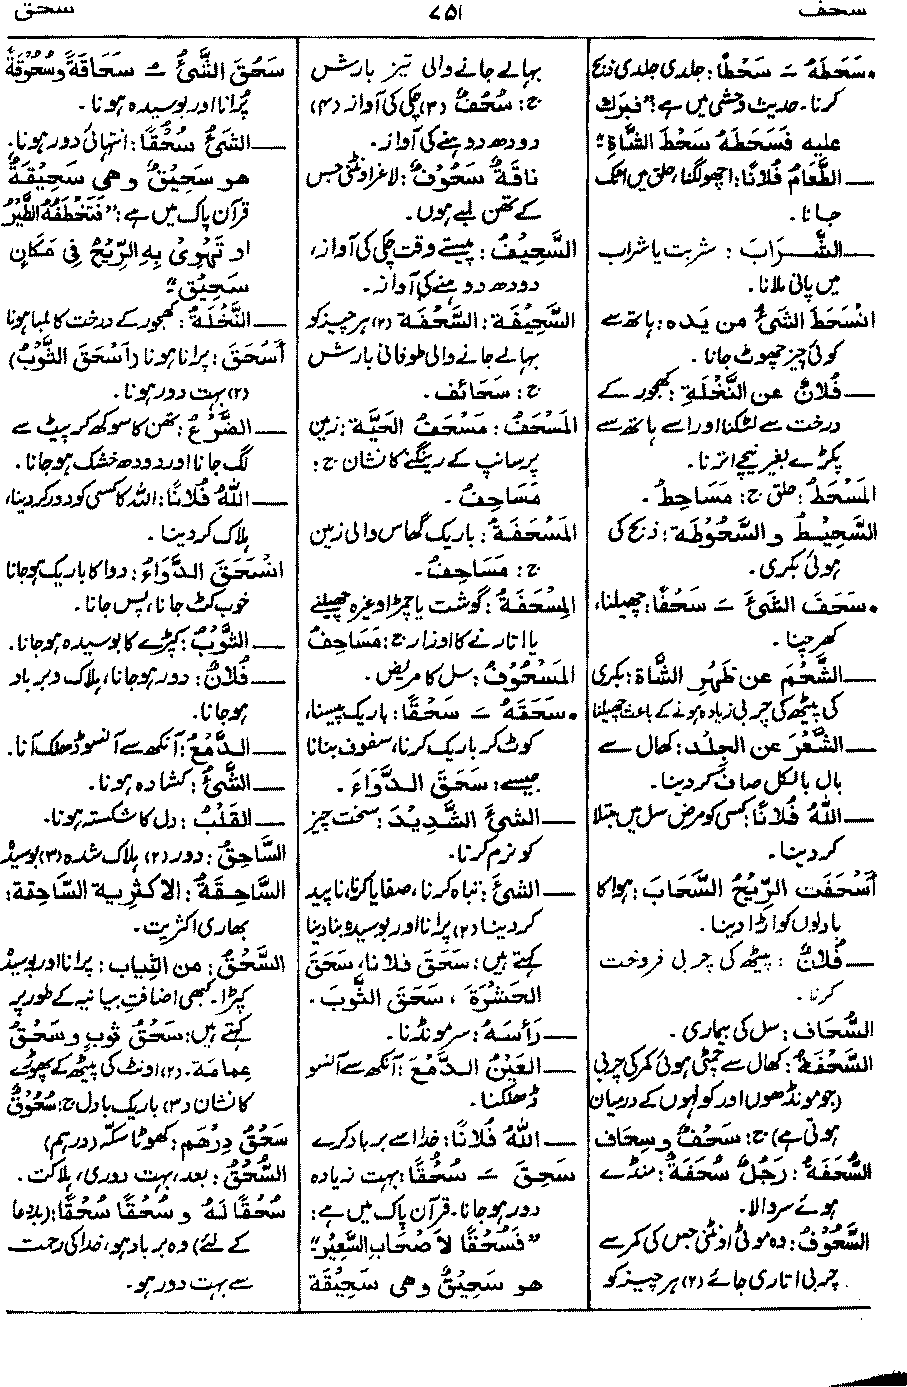 سحف
۷۵۱
سحق
• سَحَطَهٗ ــَ سَحْطًا: جلدی جلدی ذبح
کرنا۔ حدیث وحشی میں ہے: ”فبَرَك
عليه فَسَحَطَهٗ سَحْطَ الشَّاةِ“
ــــ الطَّعَامُ فُلَانًا: اچھو لگنا، حلق میں اٹک
جانا۔
ــــ الشَّــرَابَ : شربت یا شراب
میں پانی ملانا۔
انْسَحَطَ الشَّىْءُ من يَدِه: ہاتھ سے
کوئی چیز چھوٹ جانا۔
ــــ فُلَانٌ عن النَّخْلَةِ: کھجور کے
درخت سے لٹکنا اور اسے ہاتھ سے
پکڑے بغیر نیچے اترنا۔
المَسْحَطُ: حلق ج: مَسَاحِطُ۔
السَّحِيْـــطُ و السَّحُوْطَة: ذبح کی
ہوئی بکری۔
• سَحَفَ الشَّيْءَ ــَ سَحْفًا: چھیلنا،
کھرچنا۔
ــــ الشَّحْمَ عن ظَهْرِ الشَّاة: بکری
کی پیٹھ کی چربی زیادہ ہونے کے باعث چھیلنا
ــــ الشَّعْرَ عن الجِلْد: کھال سے
بال بالکل صاف کردینا۔
ــــ اللهُ فُلَانًا: کسی کو مرض سل میں مبتلا
کردینا۔
أَسْحَفَت الرِّيْحُ السَّحَابَ: ہوا کا
بادلوں کو اڑا دینا۔
ــــ فُلَانٌ : پیٹھ کی چربی فروخت
کرنا۔
السُّحَاف: سل کی بیماری۔
السَّحْفَةُ: کھال سے چمٹی ہوئی کمر کی چربی
(جو مونڈھوں اور کولہوں کے درمیان
ہوتی ہے) ج: سَحْفٌ و سِحَاف
السُّحَفَةُ: رَجُلٌ سُحَفَةٌ: منڈے
ہوئے سر والا۔
السَّحُوْفُ: وہ موٹی اونٹنی جس کی کمر سے
چربی اتاری جائے (۲) ہر چیز کو
بہالے جانے والی تیز بارش
ج: سُحُفٌ (۳) چکی کی آواز (۴)
دودھ دوہنے کی آواز۔
ناقَةٌ سَحُوْفٌ: لاغر اونٹنی جس
کے تھن لمبے ہوں۔
السَّحِيْفُ: پیستے وقت چکی کی آواز،
دودھ دوہنے کی آواز۔
السَّحِيْفَة: السَّحْفَة (۲) ہر چیز کو
بہالے جانے والی طوفانی بارش
ج: سَحَائف۔
المَسْحَفُ: مَسْحَفُ الحَيَّة: زمین
پر سانپ کے رینگنے کا نشان ج:
مَسَاحِفُ۔
المَسْحَفَةُ: باریک گھاس والی زمین
ج: مَسَاحِفُ۔
المِسْحَفَةُ: گوشت یا چمڑا وغیرہ چھیلنے
یا اتارنے کا اوزار ج: مَسَاحِفُ
المَسْحُوْفُ: سل کا مریض۔
• سَحَقَهُ ــَ سَحْقًا: باریک پیسنا،
کوٹ کر باریک کرنا، سفوف بنانا
جیسے: سَحَقَ الـدَّوَاءَ۔
ــــ الشيءَ الشَّدِيْدَ: سخت چیز
کو نرم کرنا۔
ــــ الشيءَ: تباہ کرنا، صفایا کرنا، ناپید
کردینا (۲) پرانا اور بوسیدہ بنا دینا
کہتے ہیں: سَحَقَ فلانا، سَحَقَ
الحَشَرَةَ ، سَحَقَ الثَّوبَ۔
ــــ رَأْسَهُ: سر مونڈنا۔
ــــ العَيْنُ الـدَّمْعَ: آنکھ سے آنسو
ڈھلکنا۔
ــــ اللهُ فُلَانًا: خدا سے برباد کرے
سَحِقَ ــَ سُحْقًا: بہت زیادہ
دور ہوجانا۔ قرآن پاک میں ہے:
”فَسُحْقًا لِأَصْحَابِ السَّعِيْرِ“
هو سَحِيْقٌ وهي سَحِيْقَة
سَحُقَ الشَّيْءُ ــُ سَحَاقَةً وسُحُوْقَةً
پُرانا اور بوسیدہ ہونا۔
ــــ الشيءُ سُحْقًا: انتہائی دور ہونا۔
هو سَحِيْقٌ وهي سَحِيْقَةٌ
قرآن پاک میں ہے: ”فَتَخْطَفُهُ الطَّيْرُ
او تَهْوِىْ بِهِ الرِّيْحُ فِي مَكَانٍ
سَحِيْقٍ“
ــــ النَّخْلَةُ: کھجور کے درخت کا لمبا ہونا
أَسْحَقَ: پرانا ہونا (أَسْحَقَ الثَّوْبُ)
(۲) بہت دور ہونا۔
ــــ الضَّرْعُ: تھن کا سوکھ کر پیٹ سے
لگ جانا اور دودھ خشک ہوجانا۔
ــــ اللهُ فُلَانًا: اللہ کا کسی کو دور کردینا،
ہلاک کردینا۔
انْسَحَقَ الـدَّوَاءُ: دوا کا باریک ہوجانا
خوب کٹ جانا، پس جانا۔
ــــ الثَّوْبُ: کپڑے کا بوسیدہ ہوجانا۔
ــــ فُلَانٌ: دور ہوجانا، ہلاک و برباد
ہوجانا۔
ــــ الـدَّمْعُ: آنکھ سے آنسو ڈھلک آنا۔
ــــ الشَّيْءُ: کشادہ ہونا۔
ــــ القَلْبُ: دل کا شکستہ ہونا۔
السَّاحِقُ: دور (۲) ہلاک شدہ (۳) بوسیدہ
السَّاحِقَةُ: الاكثرية السَّاحِقَة:
بھاری اکثریت۔
السَّحْقُ: من الثِّيَاب: پرانا اور بوسیدہ
کپڑا۔ کبھی اضافتِ بیانیہ کے طور پر
کہتے ہیں: سَحْقُ ثَوْبٍ و سَحْقُ
عِمَامَة۔ (۲) اونٹ کی پیٹھ کے پھوڑے
کا نشان (۳) باریک بادل ج: سُحُوْقٌ
سَحْقُ دِرْهَم: کھوٹا سکّہ (درہم)
السُّحْقُ: بعد، بہت دوری، ہلاکت۔
سُحْقًا لَهُ و سُحْقًا سُحْقًا: (بددعا
کے لئے) وہ برباد ہو، خدا کی رحمت
سے بہت دور ہو۔